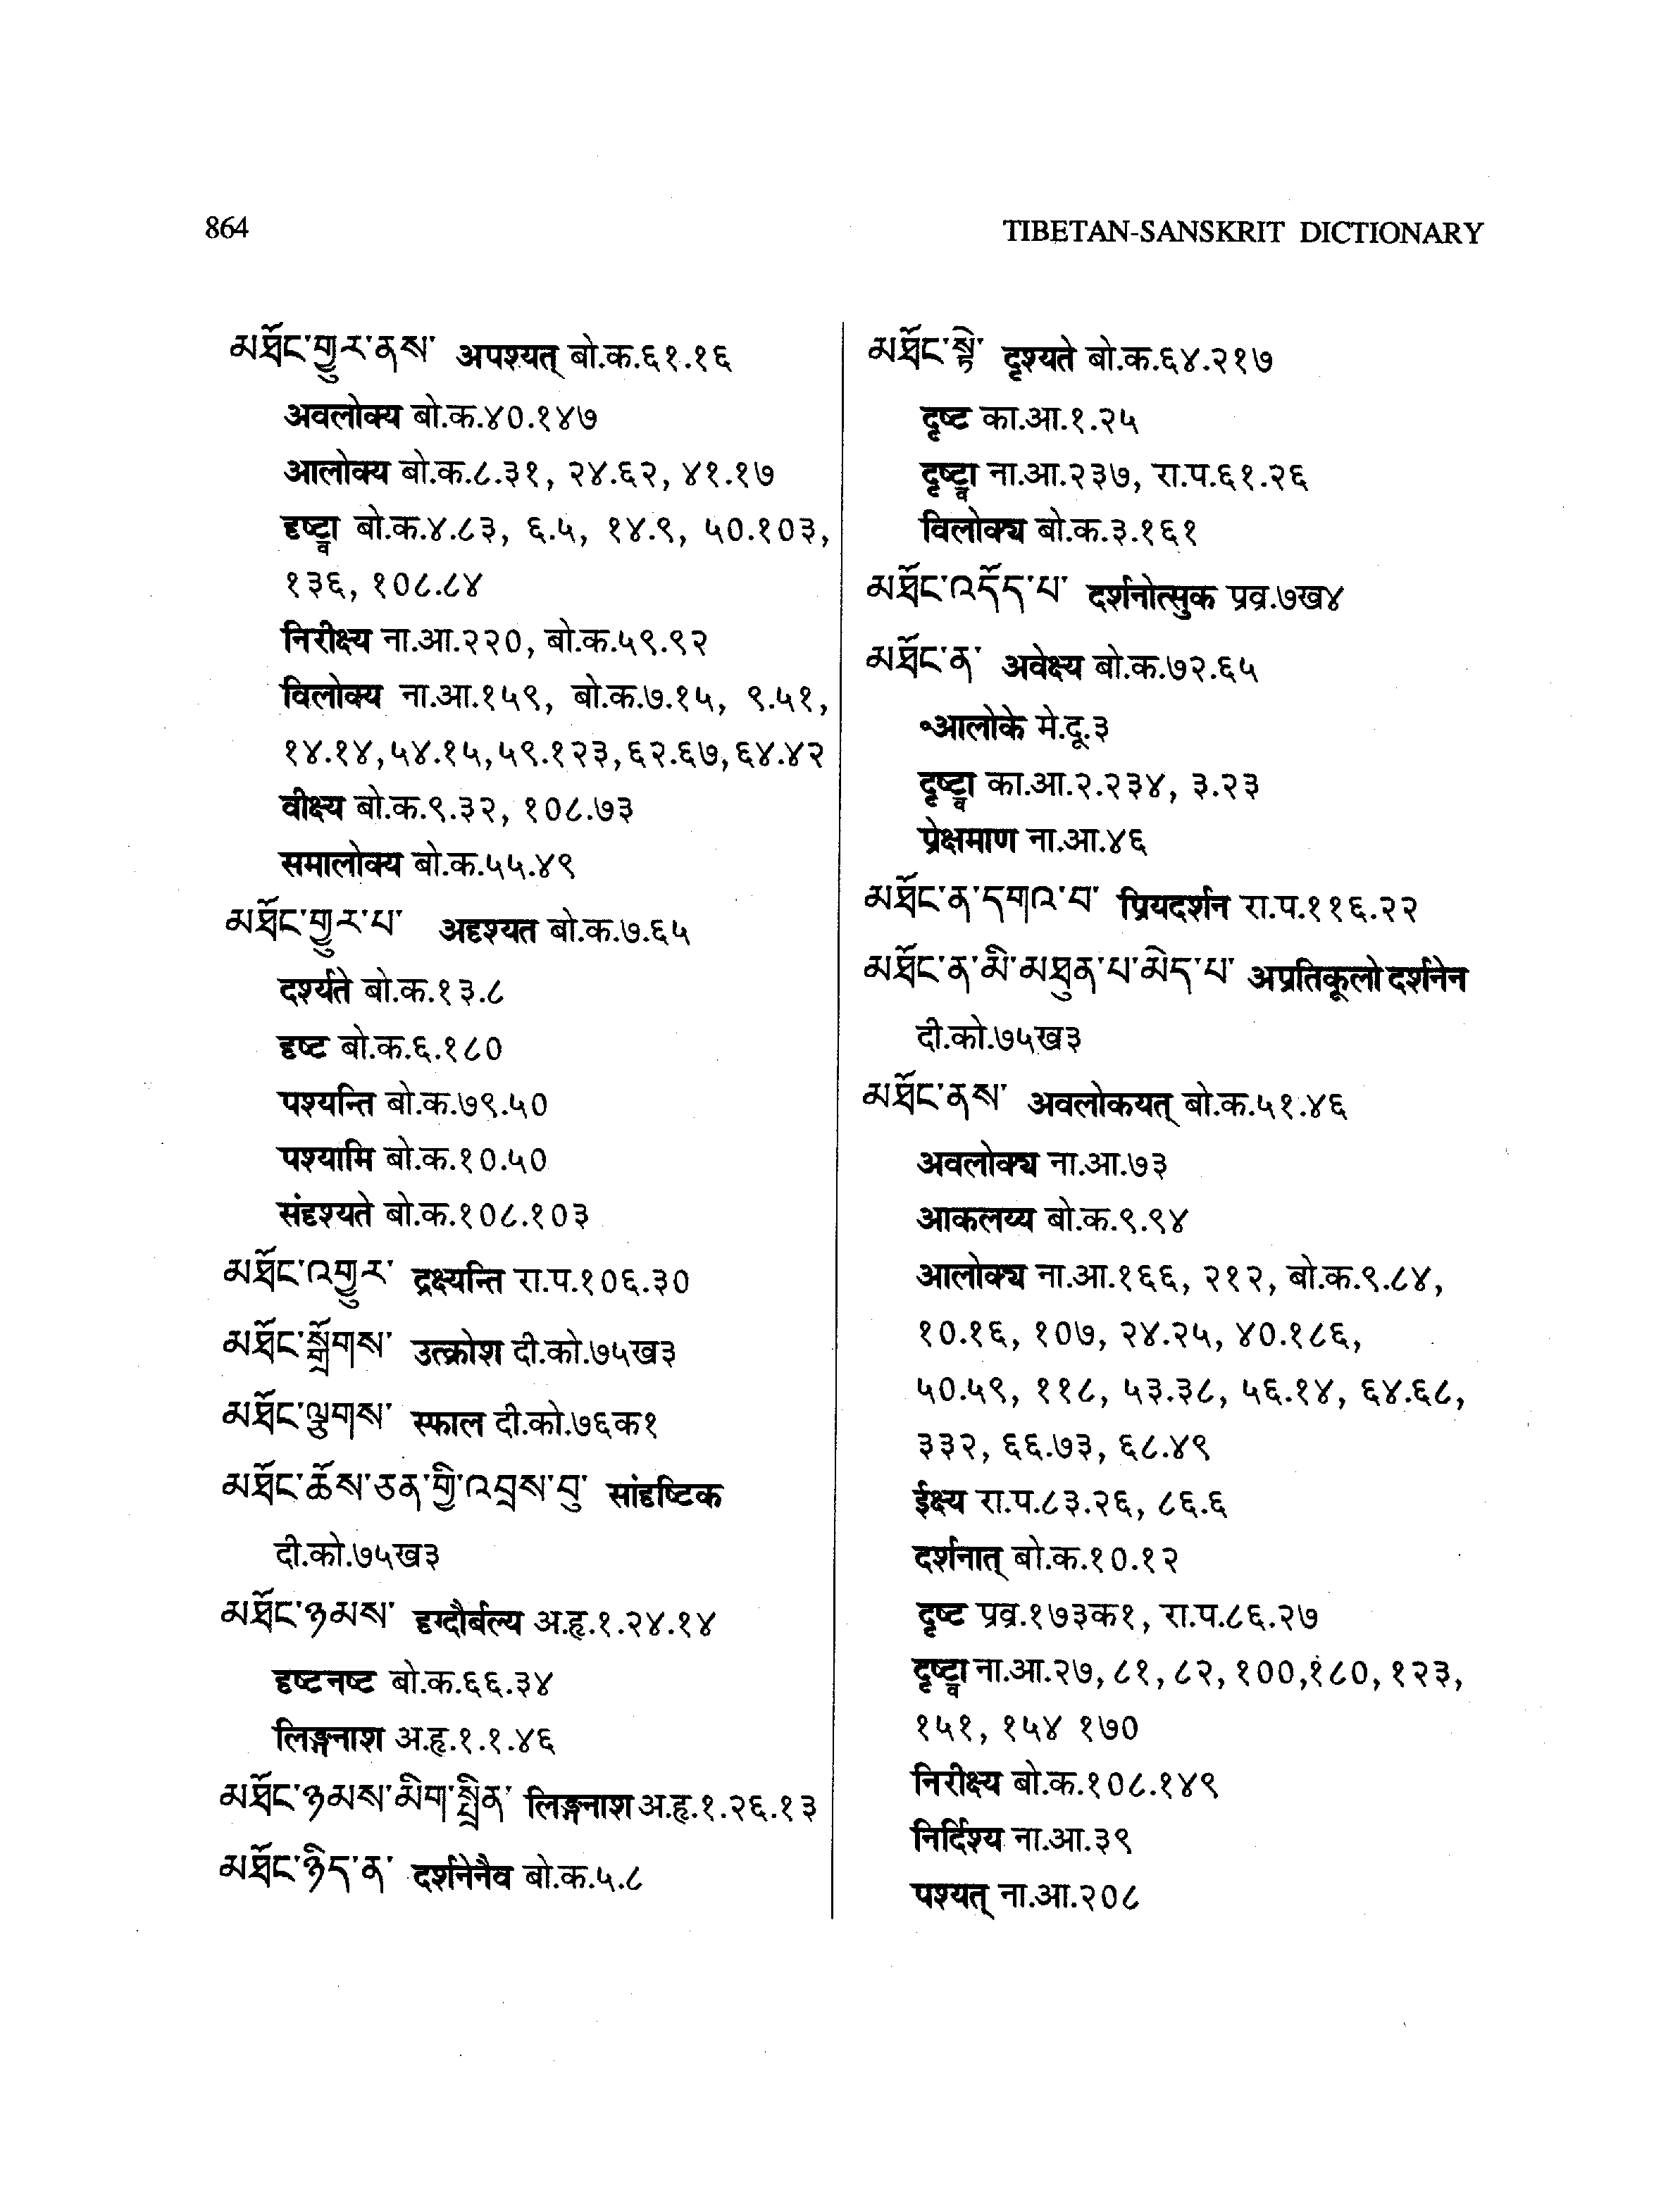 864
TIBETAN-SANSKRIT DICTIONARY
མཐོང་གྱུར་ནས་ अपश्यत् बो.क.६१.१६
अवलोक्य बो.क.४०.१४७
आलोक्य बो.क.८.३१, २४.६२, ४१.१७
दृष्ट्वा बो.क.४.८३, ६.५, १४.९, ५०.१०३,
१३६, १०८.८४
निरीक्ष्य ना.आ.२२०, बो.क.५९.९२
विलोक्य ना.आ.१५९, बो.क.७.१५, ९.५१,
१४.१४,५४.१५,५९.१२३,६२.६७,६४.४२
वीक्ष्य बो.क.९.३२, १०८.७३
समालोक्य बो.क.५५.४९
མཐོང་གྱུར་པ་ अदृश्यत बो.क.७.६५
दर्श्यते बो.क.१३.८
दृष्ट बो.क.६.१८०
पश्यन्ति बो.क.७९.५०
पश्यामि बो.क.१०.५०
संदृश्यते बो.क.१०८.१०३
མཐོང་འགྱུར་ द्रक्ष्यन्ति रा.प.१०६.३०
མཐོང་སྒྲོགས་ उत्क्रोश दी.को.७५ख३
མཐོང་ལྕགས་ स्फाल दी.को.७६क१
མཐོང་ཆོས་ཅན་གྱི་འབྲས་བུ་ सांदृष्टिक
दी.को.७५ख३
མཐོང་ཉམས་ दृग्दौर्बल्य अ.हृ.१.२४.१४
दृष्टनष्ट बो.क.६६.३४
लिङ्गनाश अ.हृ.१.१.४६
མཐོང་ཉམས་མིག་སྤྲིན་ लिङ्गनाश अ.हृ.१.२६.१३
མཐོང་ཉིད་ན་ दर्शनेनैव बो.क.५.८
མཐོང་སྟེ་ दृश्यते बो.क.६४.२१७
दृष्ट का.आ.१.२५
दृष्ट्वा ना.आ.२३७, रा.प.६१.२६
विलोक्य बो.क.३.१६१
མཐོང་འདོད་པ་ दर्शनोत्सुक प्रव्र.७ख४
མཐོང་ན་ अवेक्ष्य बो.क.७२.६५
॰आलोके मे.दू.३
दृष्ट्वा का.आ.२.२३४, ३.२३
प्रेक्षमाण ना.आ.४६
མཐོང་ན་དགའ་བ་ प्रियदर्शन रा.प.११६.२२
མཐོང་ན་མི་མཐུན་པ་མེད་པ་ अप्रतिकूलो दर्शनेन
दी.को.७५ख३
མཐོང་ནས་ अवलोकयत् बो.क.५१.४६
अवलोक्य ना.आ.७३
आकलय्य बो.क.९.९४
आलोक्य ना.आ.१६६, २१२, बो.क.९.८४,
१०.१६, १०७, २४.२५, ४०.१८६,
५०.५९, ११८, ५३.३८, ५६.१४, ६४.६८,
३३२, ६६.७३, ६८.४९
ईक्ष्य रा.प.८३.२६, ८६.६
दर्शनात् बो.क.१०.१२
दृष्ट प्रव्र.१७३क१, रा.प.८६.२७
दृष्ट्वा ना.आ.२७, ८१, ८२, १००,१८०, १२३,
१५१, १५४ १७०
निरीक्ष्य बो.क.१०८.१४९
निर्दिश्य ना.आ.३९
पश्यत् ना.आ.२०८